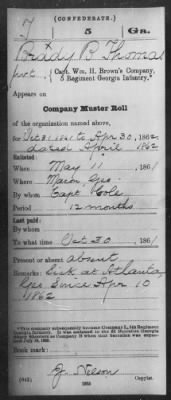 (CONFEDERATE.)
5 Ga.
Briddy B Thomas
Pvt., Capt. Wm. H. Brown's Company,
5 Regiment Georgia Infantry.*
Appears on
Company Muster Roll
of the organization named above,
for Oct 31 1861 to Apr 30, 1862
dated April 1862
Enlisted:
When May 11, 1861
Where Macon Geo.
By whom Capt
Period 12 months
Last paid:
By whom
To what time Oct 30, 1861
Present or absent absent
Remarks: Sick at Atlanta,
Geo since Apr 10
1862
Book mark:
Nelson
Copyist.